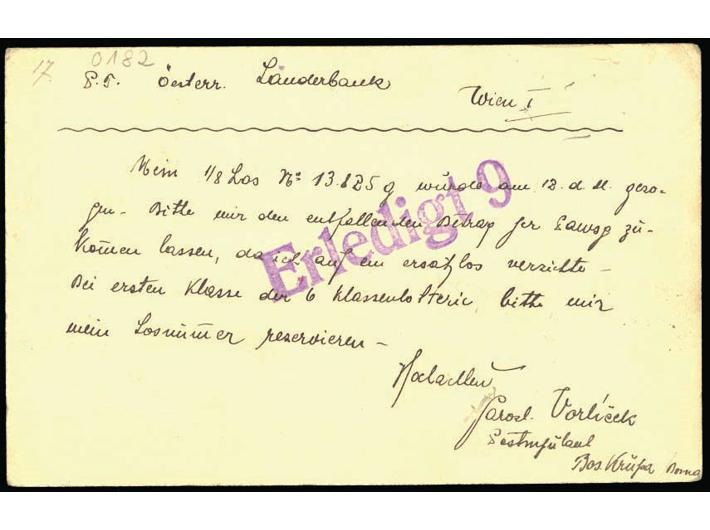 17.
0182
P. T. Österr. Länderbank
Wien I
Mein 1/8 Los No 13.825 g wurde am 12. d. M. gezo-
gen. Bitte mir den entfallenden Betrag per zu-
kommen lassen, da ich auf ein ersatzlos verzichte -
Bei ersten Klasse der 6 Klassenlotterie, bitte mir
mein Losnummer reservieren -
Erledigt 9
Jarosl. Vorlíček
Bos Krupa